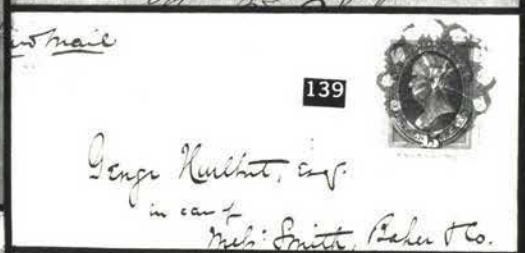 mail
139
15
George Hurlbut, Esq.
in care of
Mess: Smith, Baker & Co.